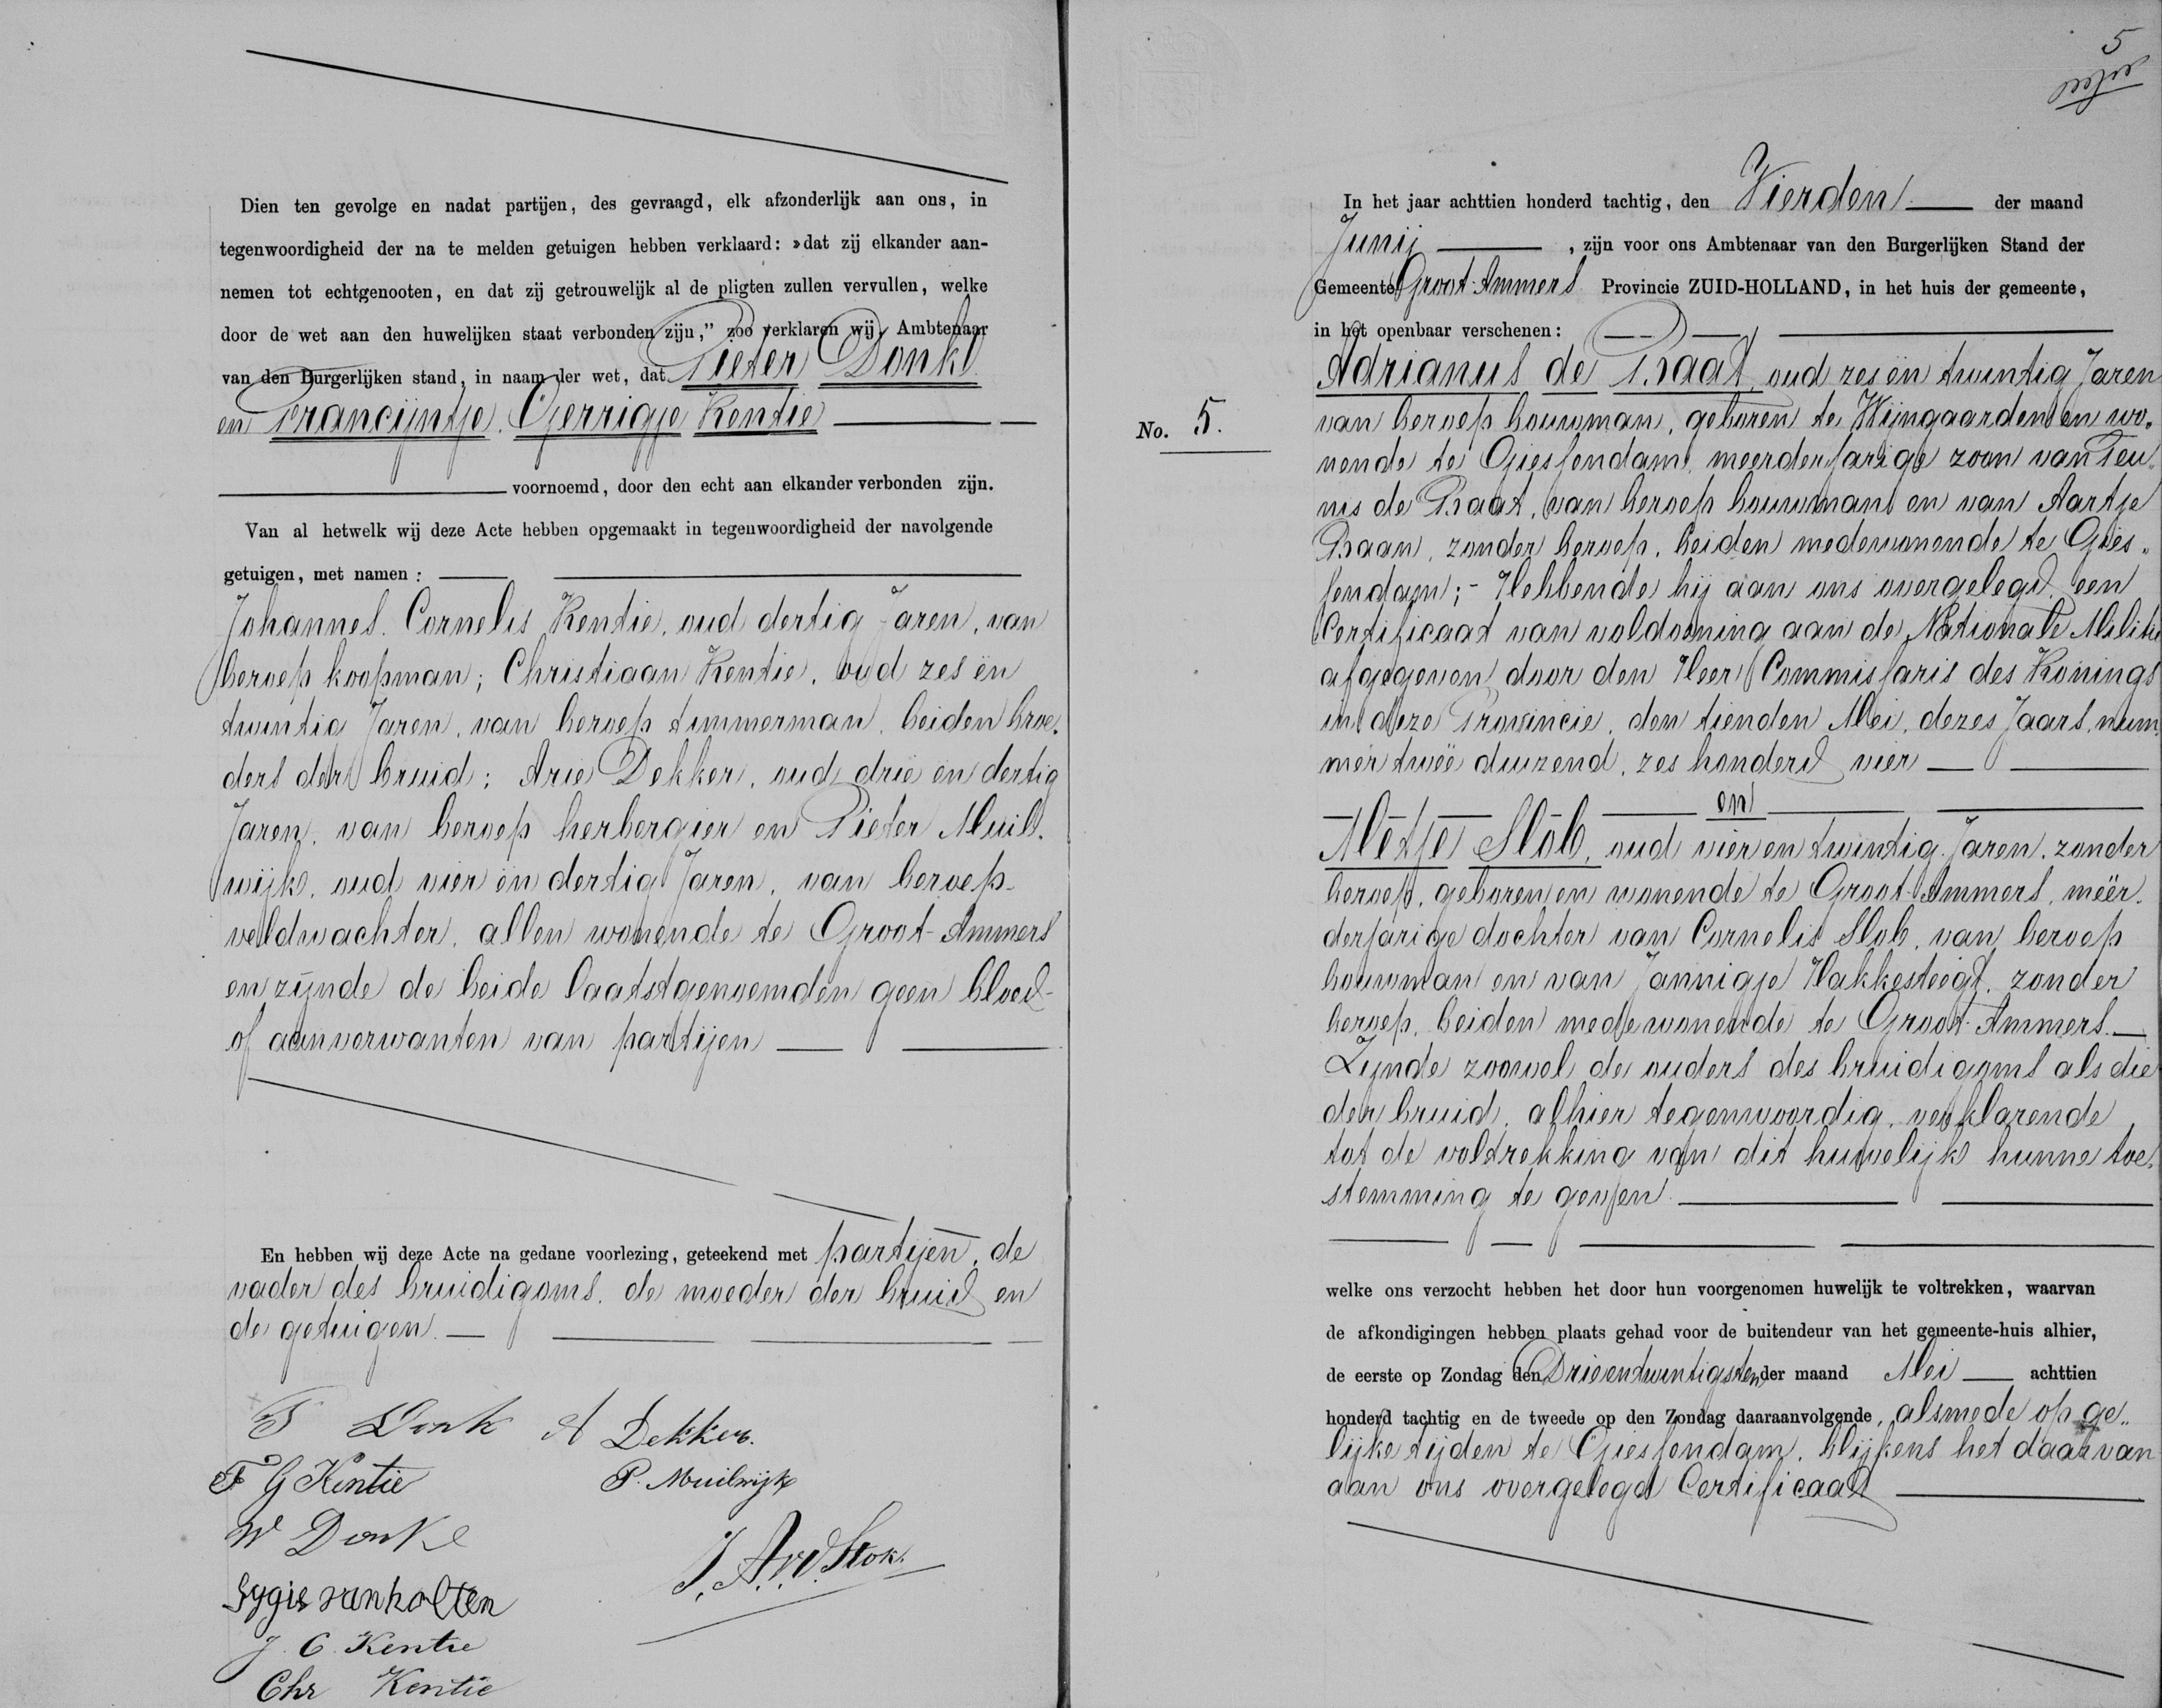 Dien ten gevolge en nadat partijen, des gevraagd, elk afzonderlijk aan ons, in
tegenwoordigheid der na te melden getuigen hebben verklaard: »dat zij elkander aan-
nemen tot echtgenooten, en dat zij getrouwelijk al de pligten zullen vervullen, welke
door de wet aan den huwelijken staat verbonden zijn," zoo verklaren wij, Ambtenaar
van den Burgerlijken stand, in naam der wet, dat Pieter Donk
en Francijntje Gerrigje Kentie
voornoemd, door den echt aan elkander verbonden zijn.
Van al hetwelk wij deze Acte hebben opgemaakt in tegenwoordigheid der navolgende
getuigen, met namen:
Johannes Cornelis Kentie, oud dertig Jaren, van
beroep koopman; Christiaan Kentie, oud zes en
twintig Jaren, van beroep timmerman, beiden broe-
ders der bruid; Arie Dekker, oud drie en dertig
Jaren, van beroep herbergier en Pieter Muil-
wijk, oud vier en dertig Jaren, van beroep
veldwachter, allen wonende te Groot-Ammers
en zijnde de beide laatstgenoemden geen bloed-
of aanverwanten van partijen
En hebben wij deze Acte na gedane voorlezing, geteekend met partijen, de
vader des bruidigoms, de moeder der bruid en
de getuigen.
P Donk A Dekker.
F G Kentie P. Muilwijk
W Donk
J. A. v d. Stok.
Sygie van holten
J. C. Kentie
Chr Kentie
5
In het jaar achttien honderd tachtig, den Vierden der maand
Junij, zijn voor ons Ambtenaar van den Burgerlijken Stand der
Gemeente Groot-Ammers Provincie ZUID-HOLLAND, in het huis der gemeente,
in het openbaar verschenen:
Adrianus de Raat, oud zes en twintig Jaren
No. 5.
van beroep bouwman, geboren te Wijngaarden en wo-
nende te Giessendam, meerderjarige zoon van Teu-
nis de Raat, van beroep bouwman en van Aartje
Baan, zonder beroep, beiden medewonende te Gies-
sendam; - Hebbende hij aan ons overgelegd een
Certificaat van voldoening aan de Nationale Militie
afgegeven door den Heer Commissaris des Konings
in deze Provincie, den tienden Mei, dezes Jaars, num-
mer twee duizend, zes honderd vier
en
Metje Slob, oud vier en twintig Jaren, zonder
beroep, geboren en wonende te Groot-Ammers, meer-
derjarige dochter van Cornelis Slob, van beroep
bouwman en van Jannigje Hakkesteegt, zonder
beroep, beiden medewonende te Groot-Ammers.
Zijnde zoowel de ouders des bruidigoms als die
der bruid, alhier tegenwoordig, verklarende
tot de voltrekking van dit huwelijk hunne toe-
stemming te geven
welke ons verzocht hebben het door hun voorgenomen huwelijk te voltrekken, waarvan
de afkondigingen hebben plaats gehad voor de buitendeur van het gemeente-huis alhier,
de eerste op Zondag den Drieentwintigsten der maand Mei achttien
honderd tachtig en de tweede op den Zondag daaraanvolgende, alsmede op ge-
lijke tijden te Giessendam, blijkens het daarvan
aan ons overgelegd Certificaat